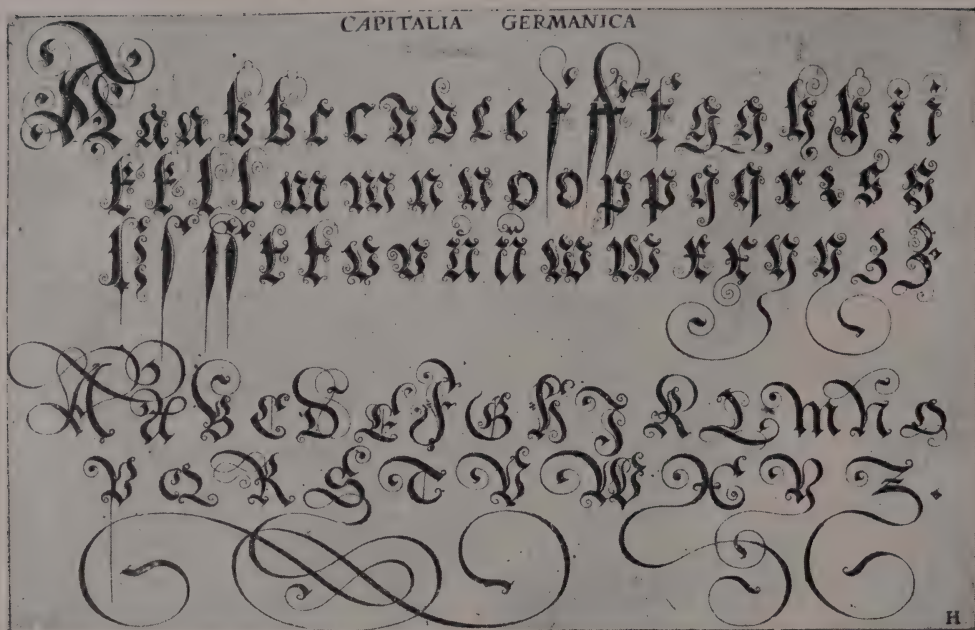 CAPITALIA GERMANICA
A a a b b c c d d e e f ff f g g, h h i i
k k l l m m n n o o p p q q r ꝛ s s
ß ſ ſſ t t v v ü ü w w x x y y z z
A A B C D E F G H J K L M N O
P Q R S T V W X Y Z.
H